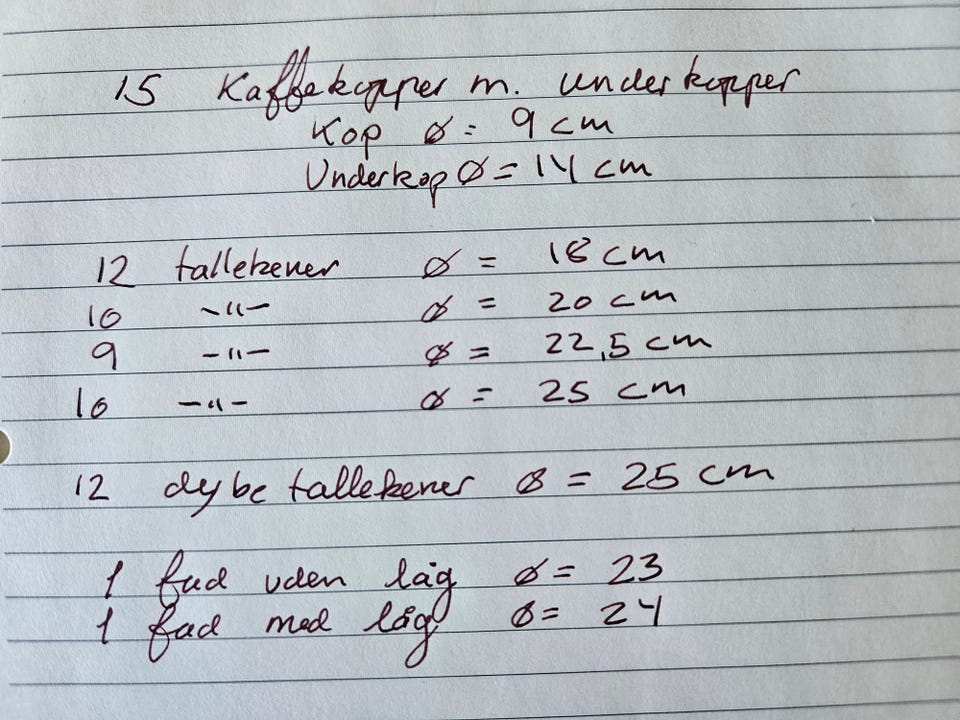 15 Kaffekopper m. underkopper
Kop ø = 9 cm
Underkop Ø = 14 cm
12 tallekener ø = 18 cm
10 -"- ø = 20 cm
9 -"- ø = 22,5 cm
10 -"- ø = 25 cm
12 dybe tallekener ø = 25 cm
1 fad uden låg ø = 23
1 fad med låg ø = 24